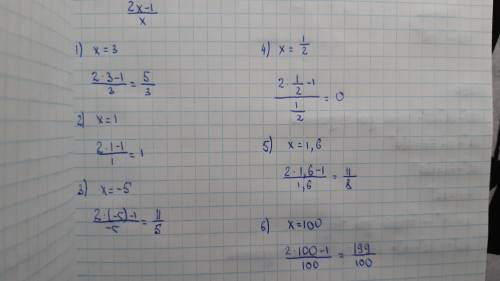 2x-1
x
1) x = 3
2·3-1 = 5
3 3
2) x = 1
2·1-1 = 1
1
3) x = -5
2·(-5)-1 = 11
-5 5
4) x = 1/2
2·1/2-1 = 0
1/2
5) x = 1,6
2·1,6-1 = 11
1,6 8
6) x=100
2·100-1 = 199
100 100